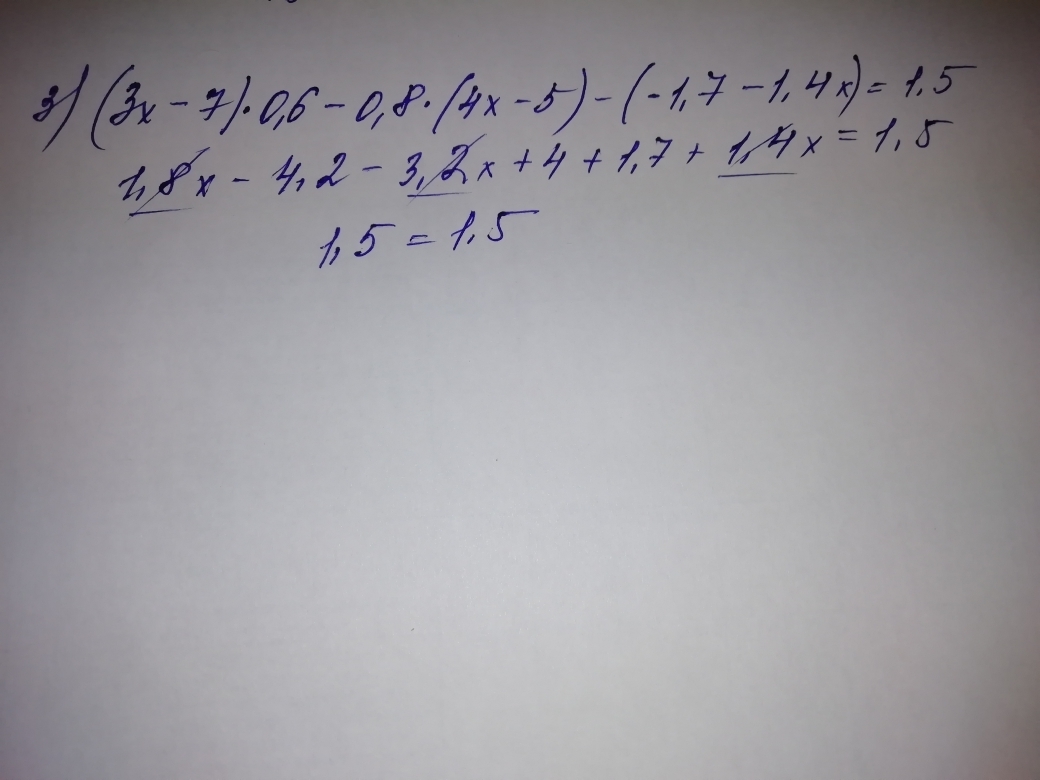 3) (3x - 7)·0,6 - 0,8·(4x - 5) - (-1,7 - 1,4x) = 1.5
1,8x - 4,2 - 3,2x + 4 + 1,7 + 1,4x = 1,5
1,5 = 1.5